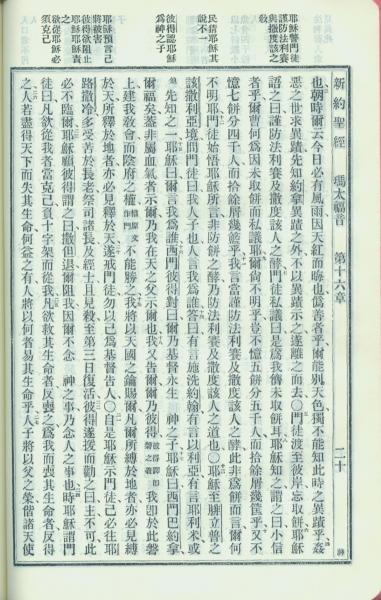 耶穌警門徒
謹防法利賽
與撒度該之
敎
民猜耶穌其
說不一
彼得認耶穌
為神之子
耶穌預言己
將被害
彼得欲阻止
之耶穌責
之
欲從耶穌必
須克己
新約聖經 瑪太福音 第十六章 二十
也朝時爾云今日必有風雨因天紅而晦也僞善者乎爾能別天色獨不能知此時之異蹟乎姦
惡之世求異蹟先知約拿異蹟之外不以異蹟示之遂離之而去○門徒渡至彼岸忘取餅耶穌
語之曰謹防法利賽及撒度該人之酵門徒私議曰是爲我儕未取餅耳耶穌知之謂之曰小信
者乎爾曹何爲因未取餅而私議耶爾尚不明乎豈不憶五餅分五千人而拾餘屑幾筐乎又不
憶七餅分四千人而拾餘屑幾籃乎我言當謹防法利賽及撒度該人之酵此非爲餅而言爾何
不明耶門徒始悟耶穌所言非防餅之酵乃防法利賽及撒度該人之道也○耶穌至腓立普之
該撒利亞境問門徒曰我人子也人言我爲誰答曰有言施洗約翰有言以利亞有言耶利米或
先知之一耶穌曰爾言我爲誰西門彼得對曰爾乃基督永生 神之子耶穌曰西門巴約拿
爾福矣蓋非屬血氣者示爾乃我在天之父示爾也我又告爾爾乃彼得 我卽於此磐
上建我敎會而陰府之權權原文作門不能勝之我將以天國之鑰賜爾凡爾所縛於地者亦必見縛
於天所釋於地者亦必見釋於天遂戒門徒勿以己爲基督告人○自是耶穌示門徒己必往耶
路撒冷多受苦於長老祭司諸長及經士且見殺至第三日復活彼得遂援而勸之曰主不可此
必不臨爾耶穌顧彼得謂之曰撒但退爾阻我因爾不念 神之事乃念人之事也時耶穌謂門
徒曰凡欲從我者當克己負十字架而從我凡欲救其生命者反喪之爲我而喪其生命者反得
之人若盡得天下而失其生命何益之有人將以何者易其生命乎人子將以父之榮偕諸天使